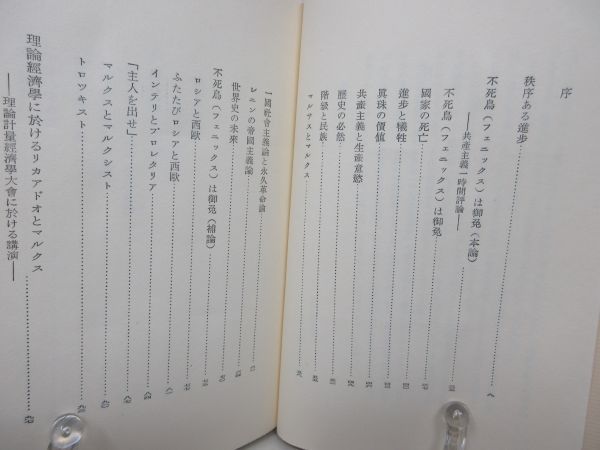 序
秩序ある進步
不死鳥（フェニックス）は御免（本論）……八
——共産主義一時間評論——
不死鳥（フェニックス）は御免
國家の死亡
進步と犠牲
眞珠の價値
共産主義と生産意慾
歷史の必然
階級と民族
マルサスとマルクス
一國社會主義論と永久革命論
レニンの帝國主義論
世界史の未來
不死鳥（フェニックス）は御免（補論）
ロシアと西歐
ふたたびロシアと西歐
インテリとプロレタリア
「主人を出せ」
マルクスとマルクシスト
トロツキスト
理論經濟學に於けるリカアドオとマルクス
——理論計量經濟學大會に於ける講演——